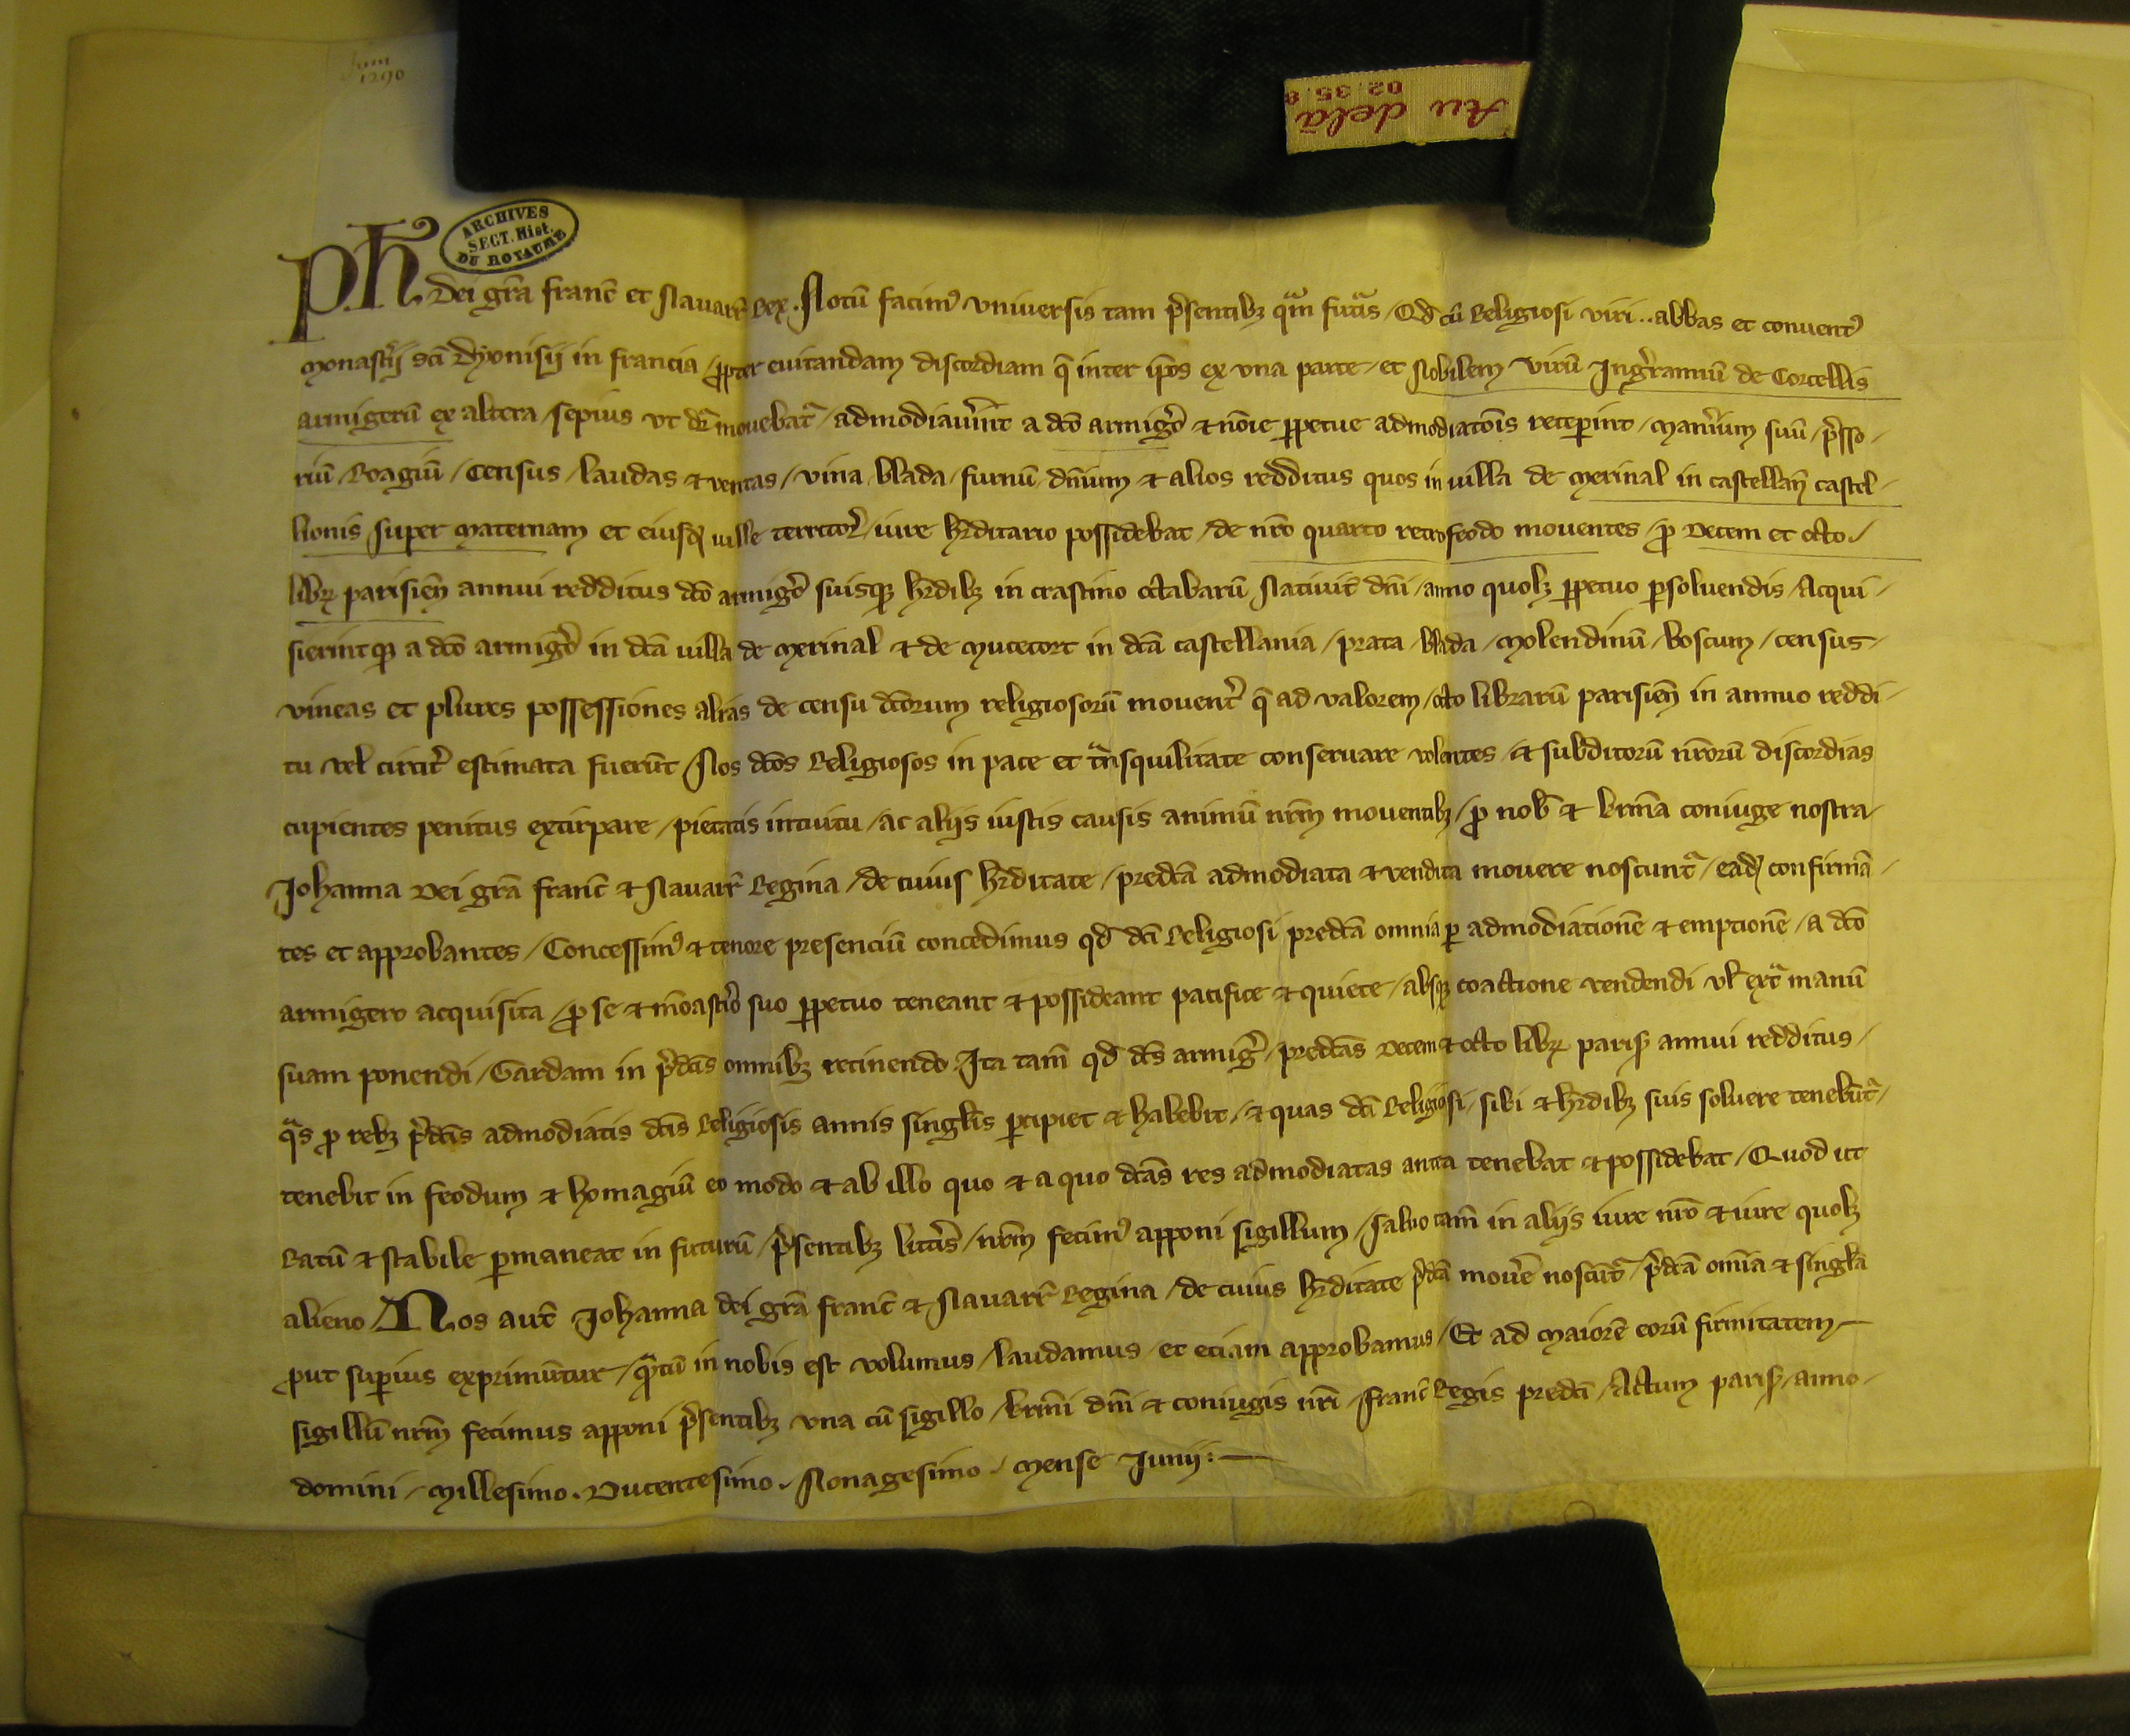 Juni
1290
Au delà
02.35.8
ARCHIVES
SECT. Hist.
DU ROYAUME
Ph. dei gr̄a franc̄ et Nauarr̄ Rex. Notū facimꝰ vniuersis tam p̄sentibꝫ qͣm futͣis / Qd cū Religiosi viri .. abbas et conuentꝰ
Monast̄ij sc̄i Dyonisij in francia / ꝓpter euitandam discordiam q̄ inter ip̄os ex vna parte / et Nobilem virū Ingͬrannū de Corcellis
armigerū ex altera / sepius vt dr̄ mouebatͬ / admodiauīnt a dc̄o armigͦ & nōīe ꝑpetue admodiatōis receꝑint / Man̄ium suū / p̄sso-
riū / Roagiū / Census / laudas & ventas / vina / blada / furnū / dn̄ium & alios redditus quos in uilla de Merinal in castellan̄ castel-
lionis super Maternam et eiusdꝫ uille territor̄ / iure hr̄ditario possidebat / de nr̄o quarto retrofeodo mouentes / ꝓ Decem et octo /
libꝝ parisien̄ annui redditus dc̄o armigͦ suisqꝫ hr̄dibꝫ in crastino octabarū Natiuit̄ dn̄i / anno quolꝫ ꝑpetuo ꝑsoluendis / Acqui-
sierintqꝫ a dc̄o armigͦ in dc̄a uilla de Merinal & de Mucecort in dc̄a castellania / prata / blada / Molendinū / boscum / census /
vineas et plures possessiones alias de censu dc̄orum religiosorū mouent̄ q̄ ad valorem / octo librarū parisien̄ in annuo reddi-
tu vel circit̄ estimata fuerūt / Nos dc̄os Religiosos in pace et tͣnsquilitate conseruare volentes / & subditorū nr̄orū discordias
cupientes penitus extirpare / pietatis intuitu / ac aliis iustis causis animū nr̄m mouentibꝫ / ꝓ nob̄ & kr̄ma coniuge nostra
Johanna Dei gr̄a franc̄ & Nauarr̄ Regina / de cuius hr̄ditate / predc̄a admodiata & vendita mouere noscuntͬ / eadꝫ confirmā-
tes et approbantes / Concessimꝰ & tenore presenciū concedimus qd̄ dc̄i Religiosi predc̄a omnia ꝑ admodiationē & emptionē / a dc̄o
armigero acquisita / ꝓ se & mōast̄io suo ꝑpetuo teneant & possideant pacifice & quiete / absqꝫ coactione vendendi vl̄ extͣ manū
suam ponendi / Gardam in p̄dc̄is omnibꝫ retinendo / Ita tam̄ qd̄ dc̄s armigͬ / predc̄as Decem & octo libꝝ paris̄ annui redditus /
qͣs ꝓ rebꝫ p̄dc̄is admodiatis dc̄is Religiosis annis singl̄is ꝑcipiet & habebit / & quas dc̄i Religiosi / sibi & hr̄dibꝫ suis soluere tenebūtͬ /
tenebit in feodum & homagiū eo modo & ab illo quo & a quo dc̄as res admodiatas antea tenebat & possidebat / Quod ut
Ratū & stabile ꝑmaneat in futurū / p̄sentibꝫ litt̄is / nr̄m fecimꝰ apponi sigillum / saluo tam̄ in aliis iure nr̄o & iure quolꝫ
alieno / Nos aut̄ Johanna dei gr̄a franc̄ & Nauarr̄ Regina / de cuius hr̄ditate p̄dc̄a mouē noscūtͬ / p̄dc̄a om̄ia & singl̄a
ꝓut suꝑius exprimūtur / qͣtū in nobis est volumus / laudamus et etiam approbamus / Et ad Maiorē eorū firmitatem
sigillū nr̄m fecimus apponi p̄sentibꝫ vna cū sigillo / kr̄mi dn̄i & coniugis nr̄i / franc̄ Regis predc̄i / Actum paris̄ / anno
domini / Millesimo . Ducentesimo . Nonagesimo / Mense Junij :